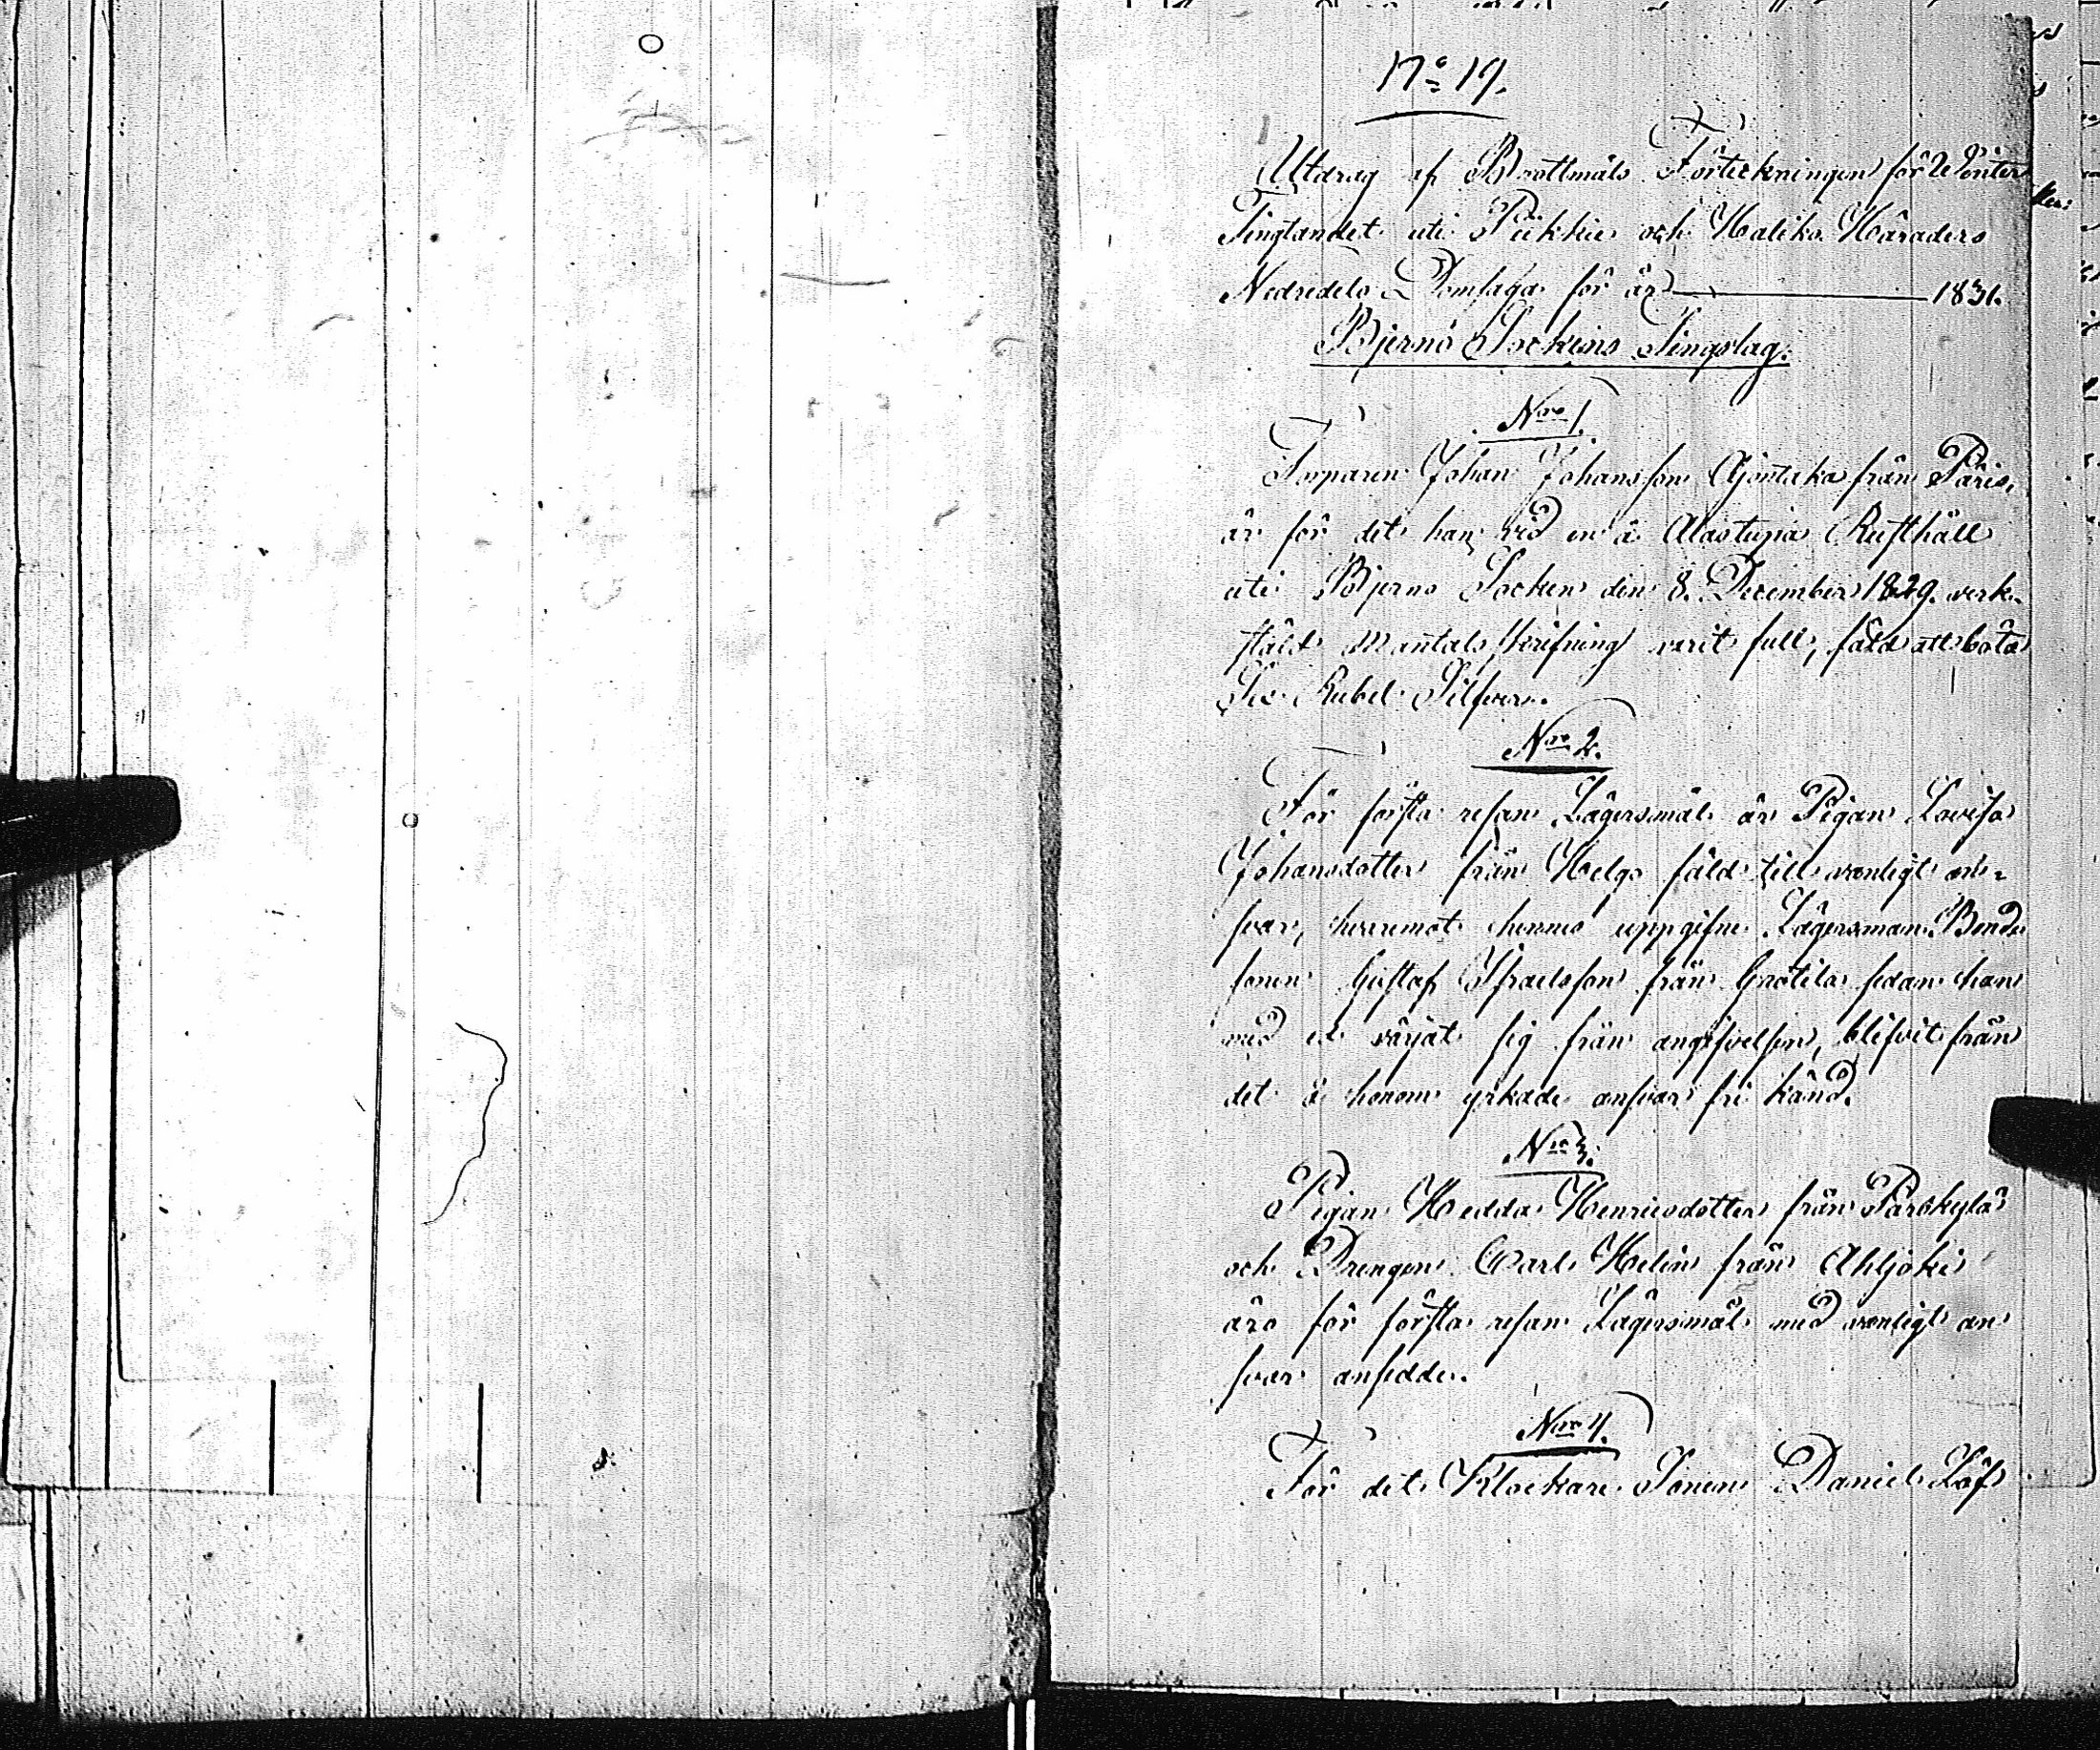 No 19.
Utdrag af Brottmåls Förteckningen för Winter
Tingtandet uti Piikkie och Haliko Häraders
Nedredels Domsaga för år 1831.
Bjerno Sockens Tingslag.
Nro 1.
Torparen Johan Johansson Ajontaka från Päris,
är för det han vid en å Alastupa Rusthåll
uti Bjerno Socken den 8. December 1829. verk-
stäld Mantals skrifning varit full, fäld att böta
Sex Rubel Silfver.
Nro 2.
För första resan Lägersmål är Pigan Lovisa
Johansdotter från Helgo fäld till vanligt an-
svar, hvaremot hennes uppgifne Lägersman Bonde
sonen Gustaf Israelsson från Grotila sedan han
med ed värjat sig från angifvelsen, blifvit från
det å honom yrkade ansvar fri känd.
Nro 3.
Pigan Hedda Henricsdotter från Pärskylä
och Drengen Carl Helin från Ahljoki
äro för första resan Lägersmål med vanligt an
svar ansedde.
Nro 4.
För det Klockare Sonen Daniel Löf